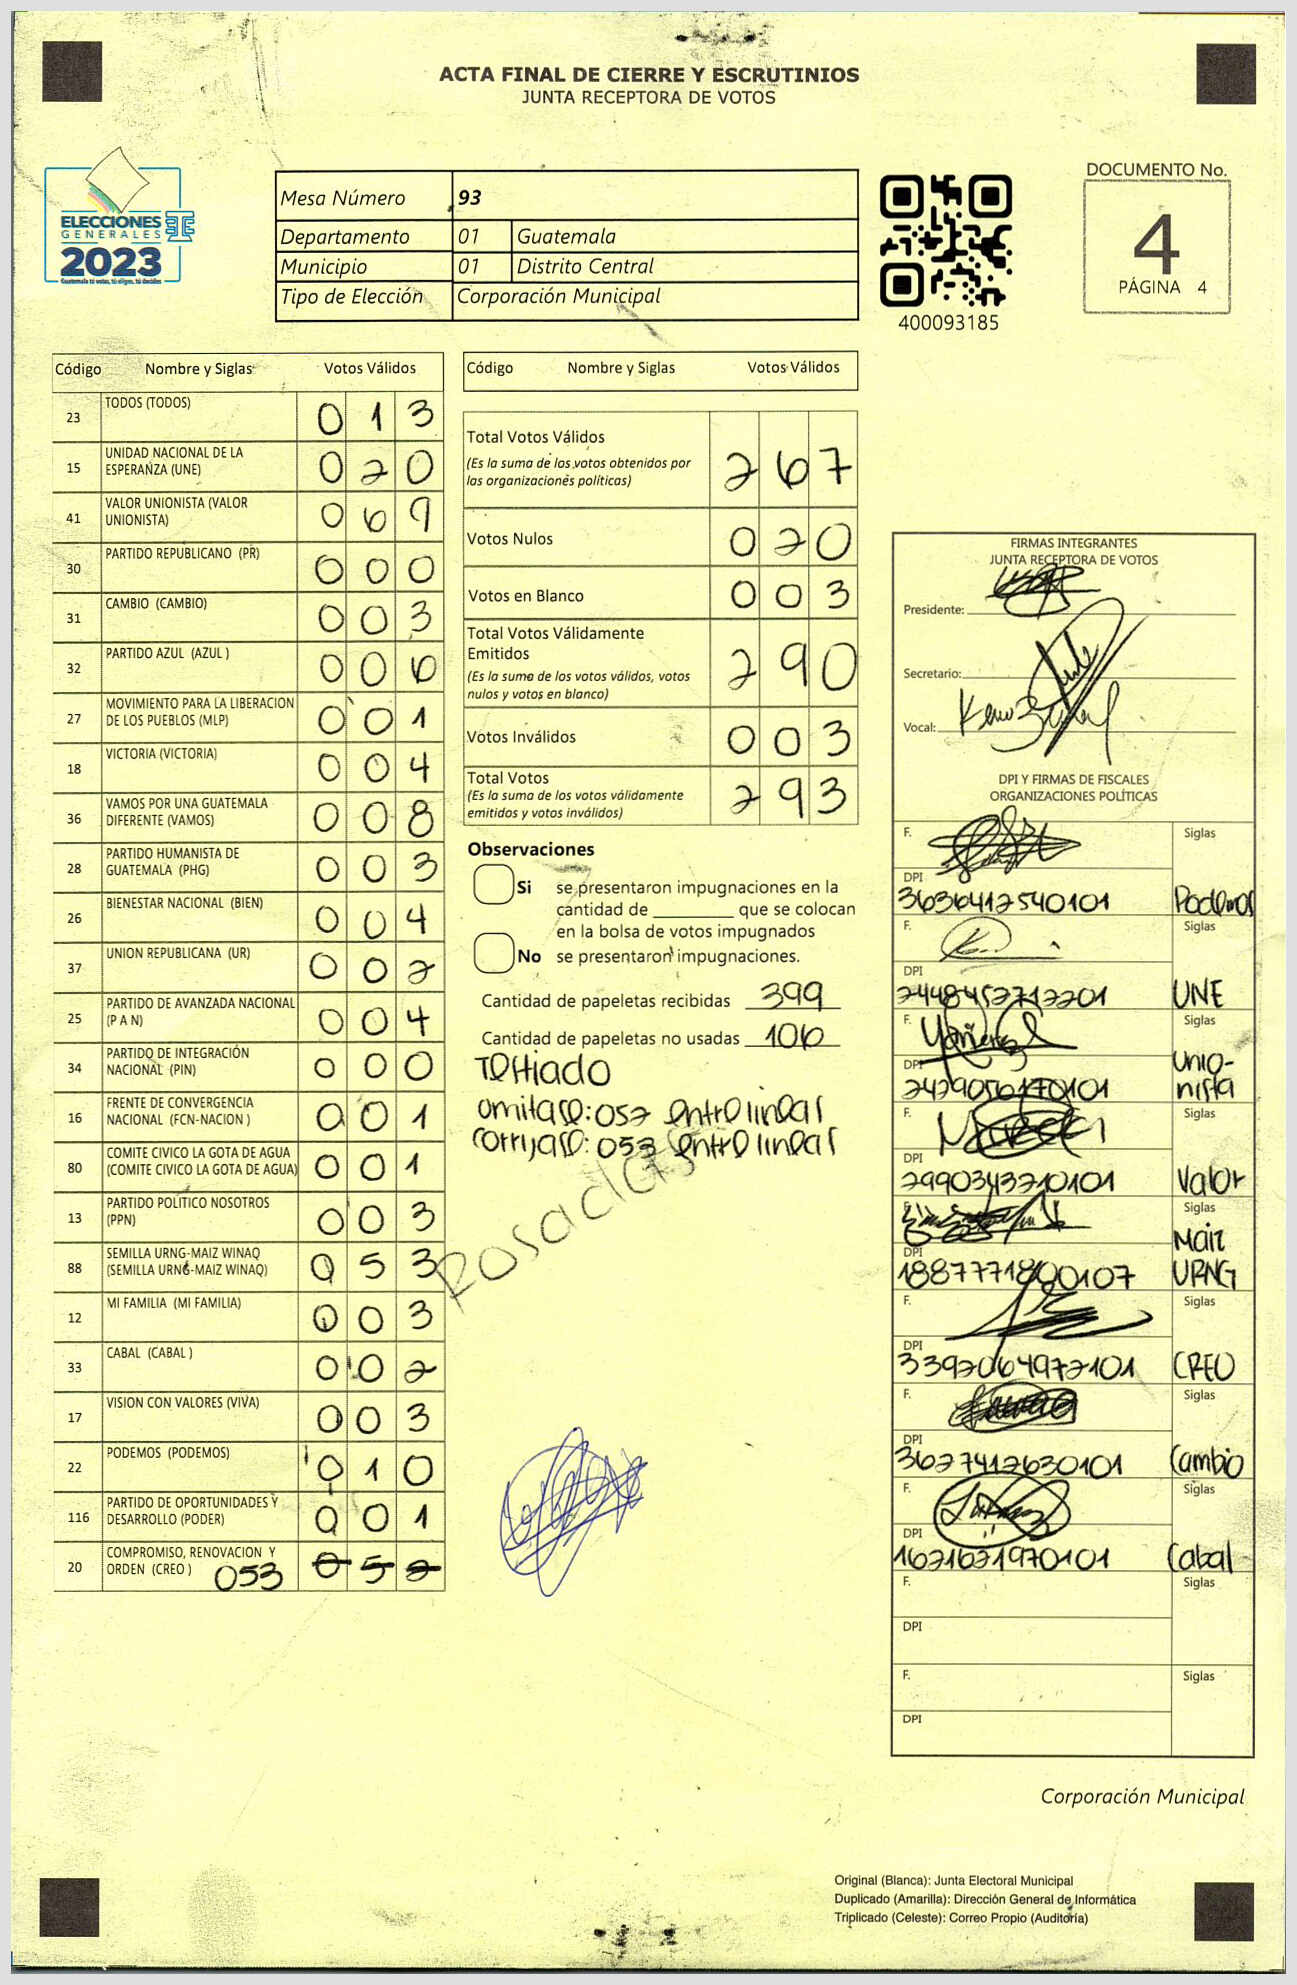 ACTA FINAL DE CIERRE Y ESCRUTINIOS
JUNTA RECEPTORA DE VOTOS
ELECCIONES
GENERALES
2023
Guatemala tú votas, tú eliges, tú decides
Mesa Número 93
Departamento 01 Guatemala
Municipio 01 Distrito Central
Tipo de Elección Corporación Municipal
400093185
DOCUMENTO No.
4
PÁGINA 4
Código Nombre y Siglas Votos Válidos
23 TODOS (TODOS) 0 1 3
15 UNIDAD NACIONAL DE LA ESPERANZA (UNE) 0 2 0
41 VALOR UNIONISTA (VALOR UNIONISTA) 0 6 9
30 PARTIDO REPUBLICANO (PR) 0 0 0
31 CAMBIO (CAMBIO) 0 0 3
32 PARTIDO AZUL (AZUL ) 0 0 6
27 MOVIMIENTO PARA LA LIBERACION DE LOS PUEBLOS (MLP) 0 0 1
18 VICTORIA (VICTORIA) 0 0 4
36 VAMOS POR UNA GUATEMALA DIFERENTE (VAMOS) 0 0 8
28 PARTIDO HUMANISTA DE GUATEMALA (PHG) 0 0 3
26 BIENESTAR NACIONAL (BIEN) 0 0 4
37 UNION REPUBLICANA (UR) 0 0 2
25 PARTIDO DE AVANZADA NACIONAL (P A N) 0 0 4
34 PARTIDO DE INTEGRACIÓN NACIONAL (PIN) 0 0 0
16 FRENTE DE CONVERGENCIA NACIONAL (FCN-NACION ) 0 0 1
80 COMITE CIVICO LA GOTA DE AGUA (COMITE CIVICO LA GOTA DE AGUA) 0 0 1
13 PARTIDO POLÍTICO NOSOTROS (PPN) 0 0 3
88 SEMILLA URNG-MAIZ WINAQ (SEMILLA URNG-MAIZ WINAQ) 0 5 3
12 MI FAMILIA (MI FAMILIA) 0 0 3
33 CABAL (CABAL ) 0 0 2
17 VISION CON VALORES (VIVA) 0 0 3
22 PODEMOS (PODEMOS) 0 1 0
116 PARTIDO DE OPORTUNIDADES Y DESARROLLO (PODER) 0 0 1
20 COMPROMISO, RENOVACION Y ORDEN (CREO ) 053 0 5 2
Código Nombre y Siglas Votos Válidos
Total Votos Válidos 2 6 7
(Es la suma de los votos obtenidos por
las organizaciones políticas)
Votos Nulos 0 2 0
Votos en Blanco 0 0 3
Total Votos Válidamente
Emitidos 2 9 0
(Es la suma de los votos válidos, votos
nulos y votos en blanco)
Votos Inválidos 0 0 3
Total Votos 2 9 3
(Es la suma de los votos válidamente
emitidos y votos inválidos)
Observaciones
Si se presentaron impugnaciones en la
cantidad de ________ que se colocan
en la bolsa de votos impugnados
No se presentaron impugnaciones.
Cantidad de papeletas recibidas 399
Cantidad de papeletas no usadas 106
Testiado
omitase: 052 entrelineas
corrijase: 053 entrelineas
FIRMAS INTEGRANTES
JUNTA RECEPTORA DE VOTOS
Presidente:
Secretario:
Vocal:
DPI Y FIRMAS DE FISCALES
ORGANIZACIONES POLÍTICAS
F. Siglas
DPI
3636412540101 Podemos
F. Siglas
DPI
2448452712201 UNE
F. Siglas
DPI
2429056170101 Unio-
nista
F. Siglas
DPI
2990343210101 Valor
F. Siglas
DPI
1887771800107 Maiz
URNG
F. Siglas
DPI
3392064972101 CREO
F. Siglas
DPI
3627412630101 Cambio
F. Siglas
DPI
1621631970101 Cabal
F. Siglas
DPI
F. Siglas
DPI
Corporación Municipal
Original (Blanca): Junta Electoral Municipal
Duplicado (Amarilla): Dirección General de Informática
Triplicado (Celeste): Correo Propio (Auditoría)